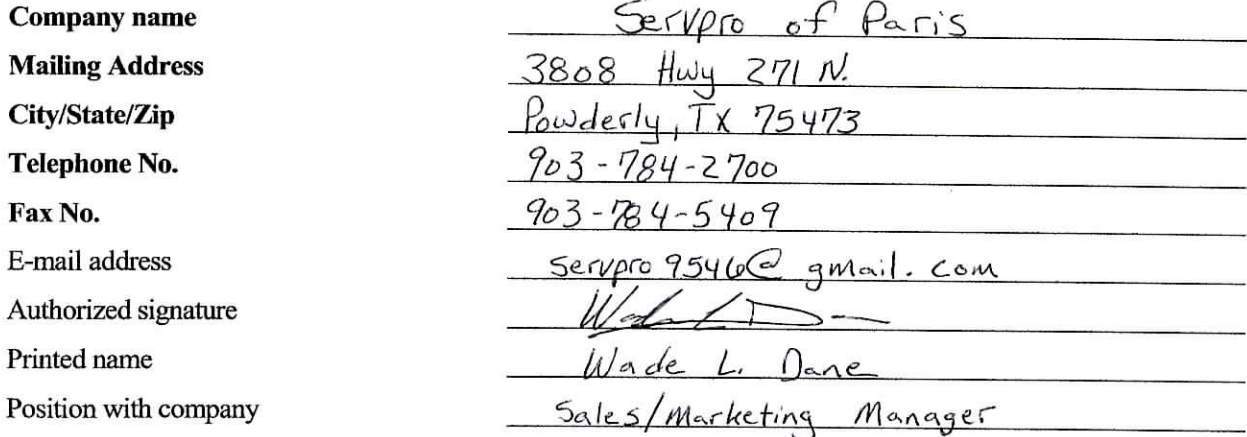 Company name Servpro of Paris
Mailing Address 3808 Hwy 271 N.
City/State/Zip Powderly, TX 75473
Telephone No. 903-784-2700
Fax No. 903-784-5409
E-mail address servpro9546@gmail.com
Authorized signature
Printed name Wade L. Dane
Position with company Sales/Marketing Manager